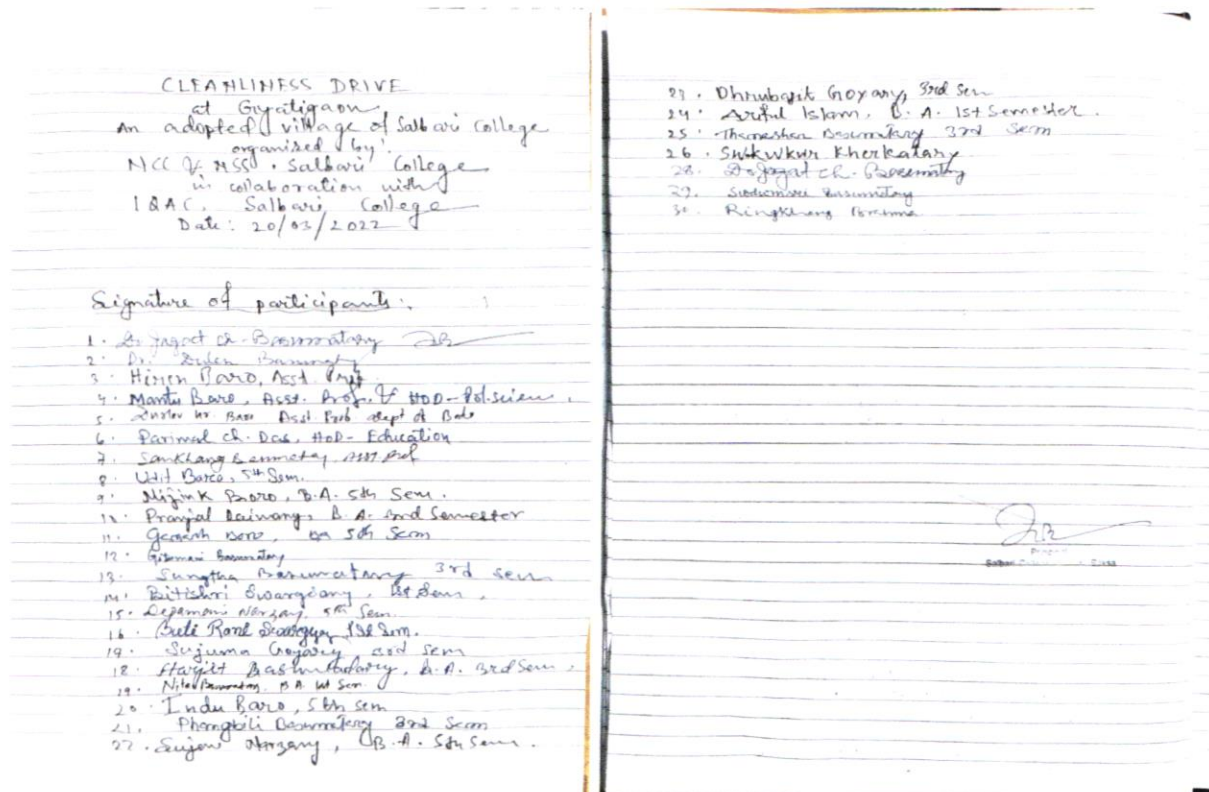 CLEANLINESS DRIVE
at Gyatigaon
An adopted village of Salbari College
organised by:
NCC & NSS. Salbari College
in collaboration with
IQAC, Salbari College
Date: 20/03/2022
Signature of participants:
1. Dr Jagat ch. Basumatary
2. Dr.
3. Hiren Baro, Asst. Prof.
4. Mantu Baro, Asst. Prof. & HOD-Pol.scien.
5. Kr. Baro Asst. Prob dept of Bodo
6. Parimal ch. Das, HoD- Education
7. Sankhang Basumatary, Asst Prof
8. Udit Baro, 5th Sem.
9. Mijink Baro, B.A. 5th Sem.
10. Pranjal Daimary, B.A. 3rd Semester
11. Ganesh Boro, BA 5th Sem
12. Gitamani Basumatary
13. Sungtha Basumatary 3rd sem
14. Bitishri Swargiary, 1st Sem,
15. Depamoni Narzary, 5th Sem.
16. Buli Rani Swargiary, 1st Sem.
19. Sujuma Goyary 3rd sem
18. Harjit Basumatary, B.A. 3rd Sem.
19. Basumatary, B.A. 1st Sem.
20. Indu Baro, 5th sem
21. Phungbili Basumatary 3rd Sem
22. Narzary, B.A. 5th Sem.
23. Dhrubajit Goyary, 3rd Sem
24. Ariful Islam, B.A. 1st Semester.
25. Basumatary 3rd Sem
26. Swkwkur Kherkatary
28. Dr Jagat ch. Basumatary
29. Basumatary
30. Ringkhang Brahma